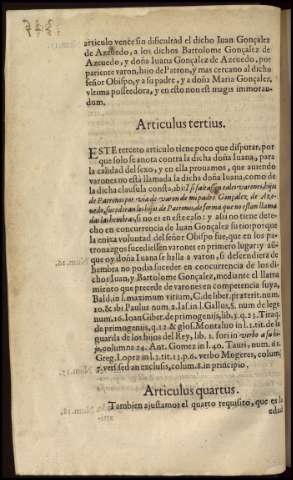 articulo vence sin dificultad el dicho Iuan Gonçalez
de Azeuedo, a los dichos Bartolome Gonçalez de
Azeuedo, y doña Iuana Gonçalez de Azeuedo, por
pariente varon, hijo de Patron, y mas cercano al dicho
señor Obispo, y a su padre, y a doña Maria Gonçalez,
vltima posseedora, y en esto non est magis immoran-
dum.
Articulus tertius.
ESTE tercero articulo tiene poco que disputar, por
que solo se anota contra la dicha doña Iuana, para
la calidad del sexo, y en ella prouamos, que auiendo
varones no està llamada la dicha doña Iuana, como de
la dicha clausula consta, ibi:
de Patronos por via de varon de mi padre Gonçalez de Aze-
uedo, sucedan las hijas de Patronos, de forma que no sean llama
das las hembras, si no es en este caso: y assi no tiene dere-
cho en concurrencia de Iuan Gonçalez su tio: porque
la enixa voluntad del señor Obispo fue, que en los pa-
tronazgos sucediessen varones en primero lugar: y aũ-
que oy doña Iuana se halla a varon, si descendiera de
hembra no podia suceder en concurrencia de los di-
chos Iuan, y Bartolome Gonçalez, mediante el llama
miento que precede de varones en competencia suya,
Bald. in l. maximum vitium, C. de liber. præterit. num.
20. & ibi Paulus num. 2. Ias. in l. Gallus, §. num. de leg.
num. 16. Ioan Gibot. de primogenijs, lib. 3. q. 23. Tiraq.
de primogenijs, q. 12 & glos. Montaluo in l. 2. tit. de la
guarda de los hijos del Rey, lib. 1. fori in verbo a su hi-
jo, columna 24. Ant. Gomez in l. 40. Tauri, num. 62.
Greg. Lopez in l. 2. tit. 15. p. 6. verbo Mugeres, colum.
7. vers. sed an exclusis, colum. 8. in principio.
Articulus quartus.
Tambien ajustamos el quarto requisito, que es la
edad